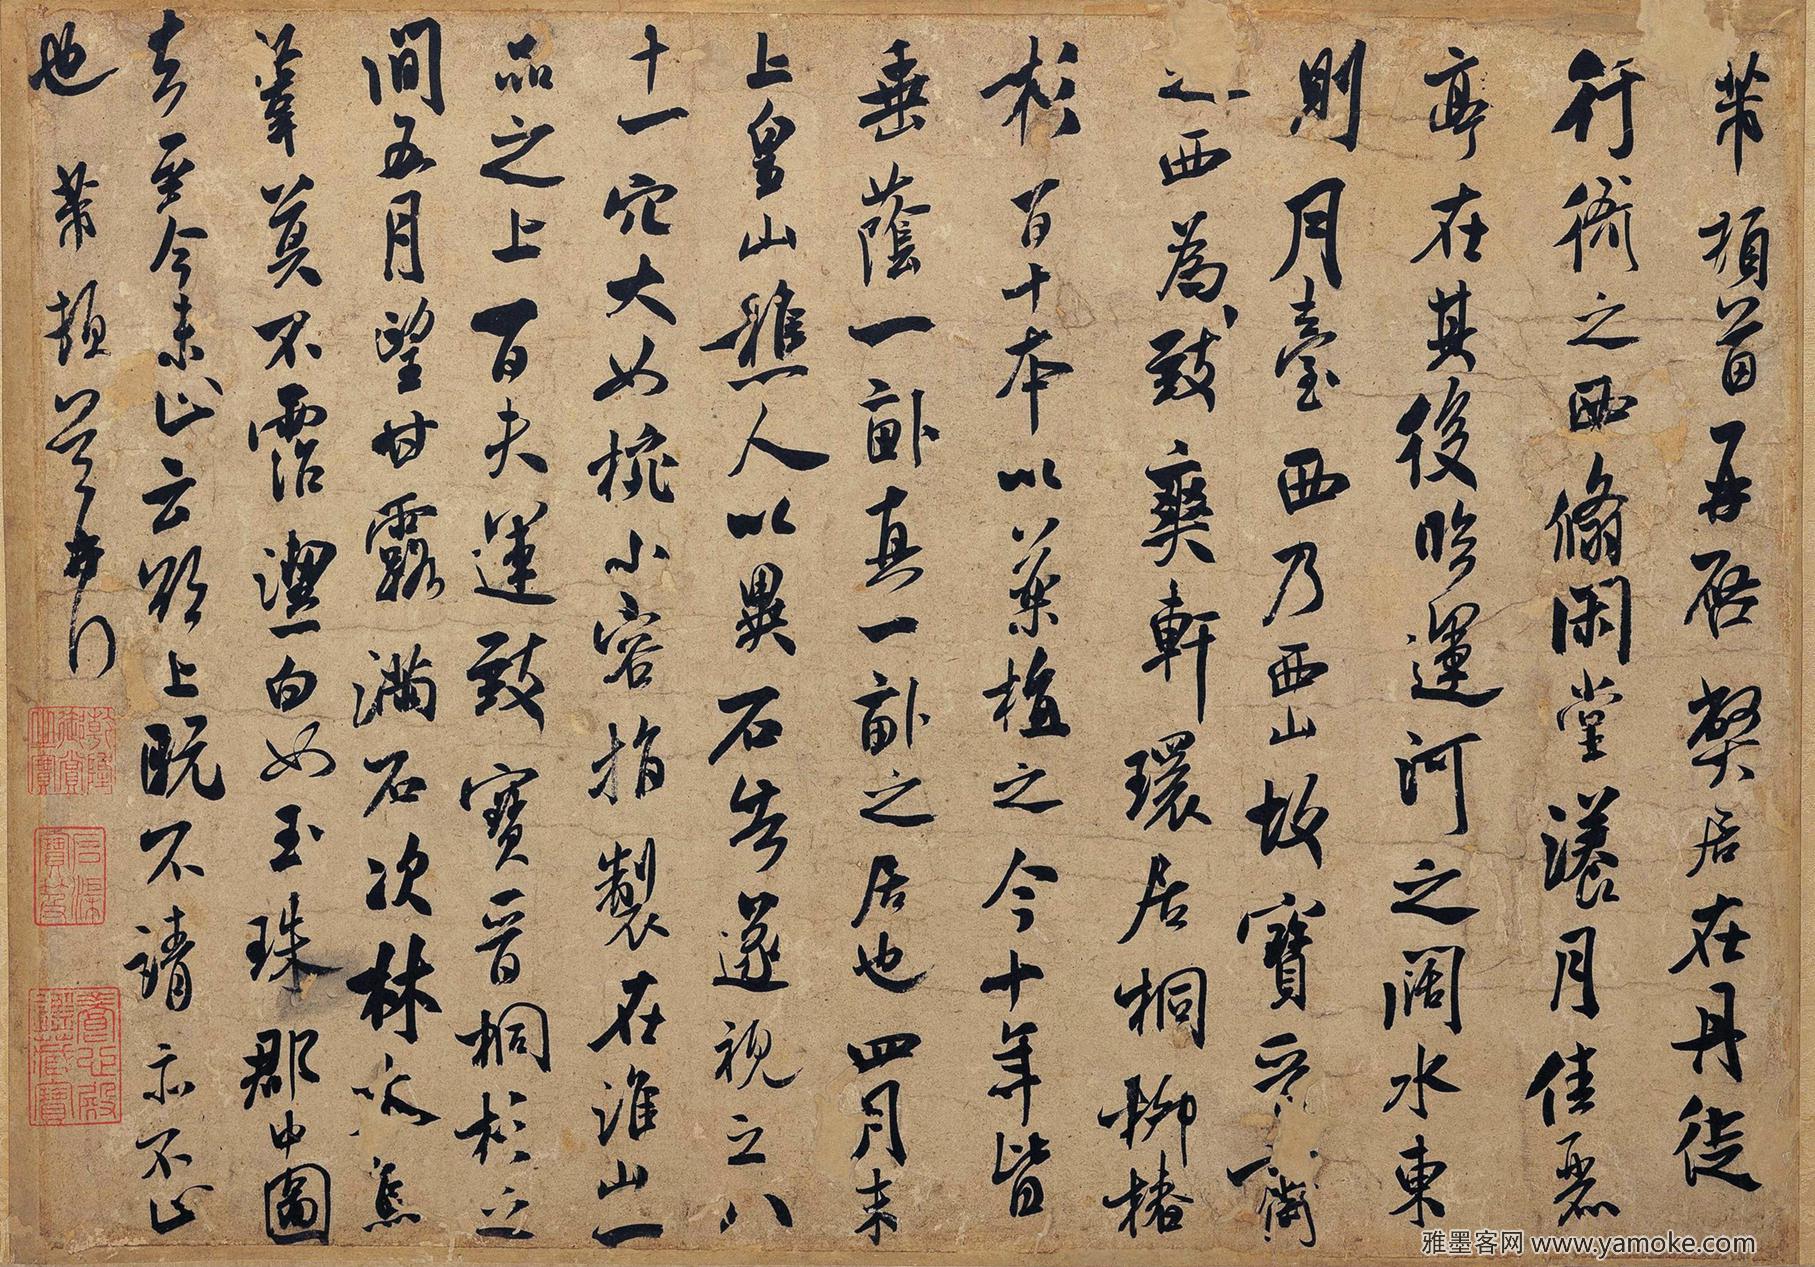 芾頓首再啓弊居在丹徒
行衙之西翛閑堂漾月佳麗
亭在其後臨運河之闊水東
則月臺西乃西山故寶晉齋
之西為致爽軒環居桐柳椿
杉百十本以藥植之今十年皆
垂蔭一畝真一畝之居也四月末
上皇山樵人以異石告遂視之八
十一穴大如椀小容指製在淮山一
品之上百夫運致寶晉桐杉之
間五月望甘露滿石次林焦
葦莫不霑潔白如玉珠郡中圖
去至今未止云欲上既不請亦不止
也芾頓首再行
乾隆御賞之寶
石渠寶笈
養心殿鑑藏寶
雅墨客网 www.yamoke.com